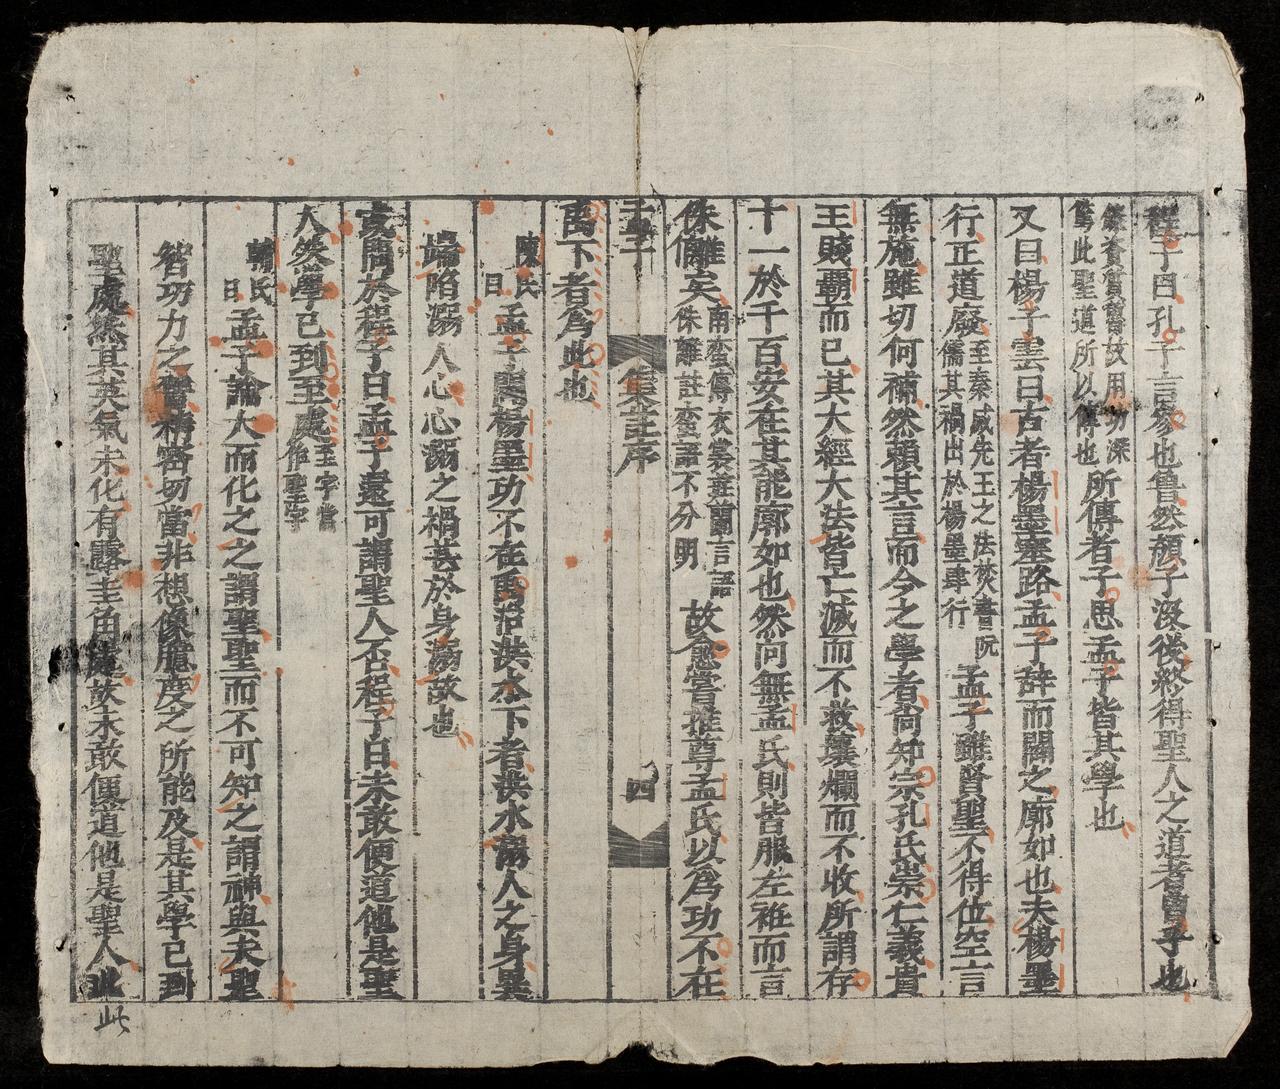 程子曰孔子言參也魯然顏子沒後終得聖人之道者曾子也
緣資質魯故用功深
篤此聖道所以傳也
所傳者子思孟子皆其學也
又曰楊子雲曰古者楊墨塞路孟子辭而闢之廓如也夫楊墨
行正道廢
至秦滅先王之法焚書阬
儒其禍出於楊墨肆行
孟子雖賢聖不得位空言
無施雖切何補然賴其言而今之學者尚知宗孔氏崇仁義貴
王賤霸而已其大經大法皆亡滅而不救壞爛而不收所謂存
十一於千百安在其能廓如也然向無孟氏則皆服左衽而言
侏離矣
南蠻傳衣裳斑蘭言語
侏離註蠻語不分明
故愈嘗推尊孟氏以爲功不在
孟子 集註序 四
禹下者爲此也
陳氏曰孟子闢楊墨功不在禹治洪水下者洪水溺人之身異
端陷溺人心心溺之禍甚於身溺故也
或問於程子曰孟子還可謂聖人否程子曰未敢便道他是聖
人然學已到至處
至字當
作聖字
輔氏曰孟子論大而化之之謂聖聖而不可知之謂神與夫聖
智功力之譬精密切當非想像臆度之所能及是其學已到
聖處然其英氣未化有露圭角處故未敢便道他是聖人此
此